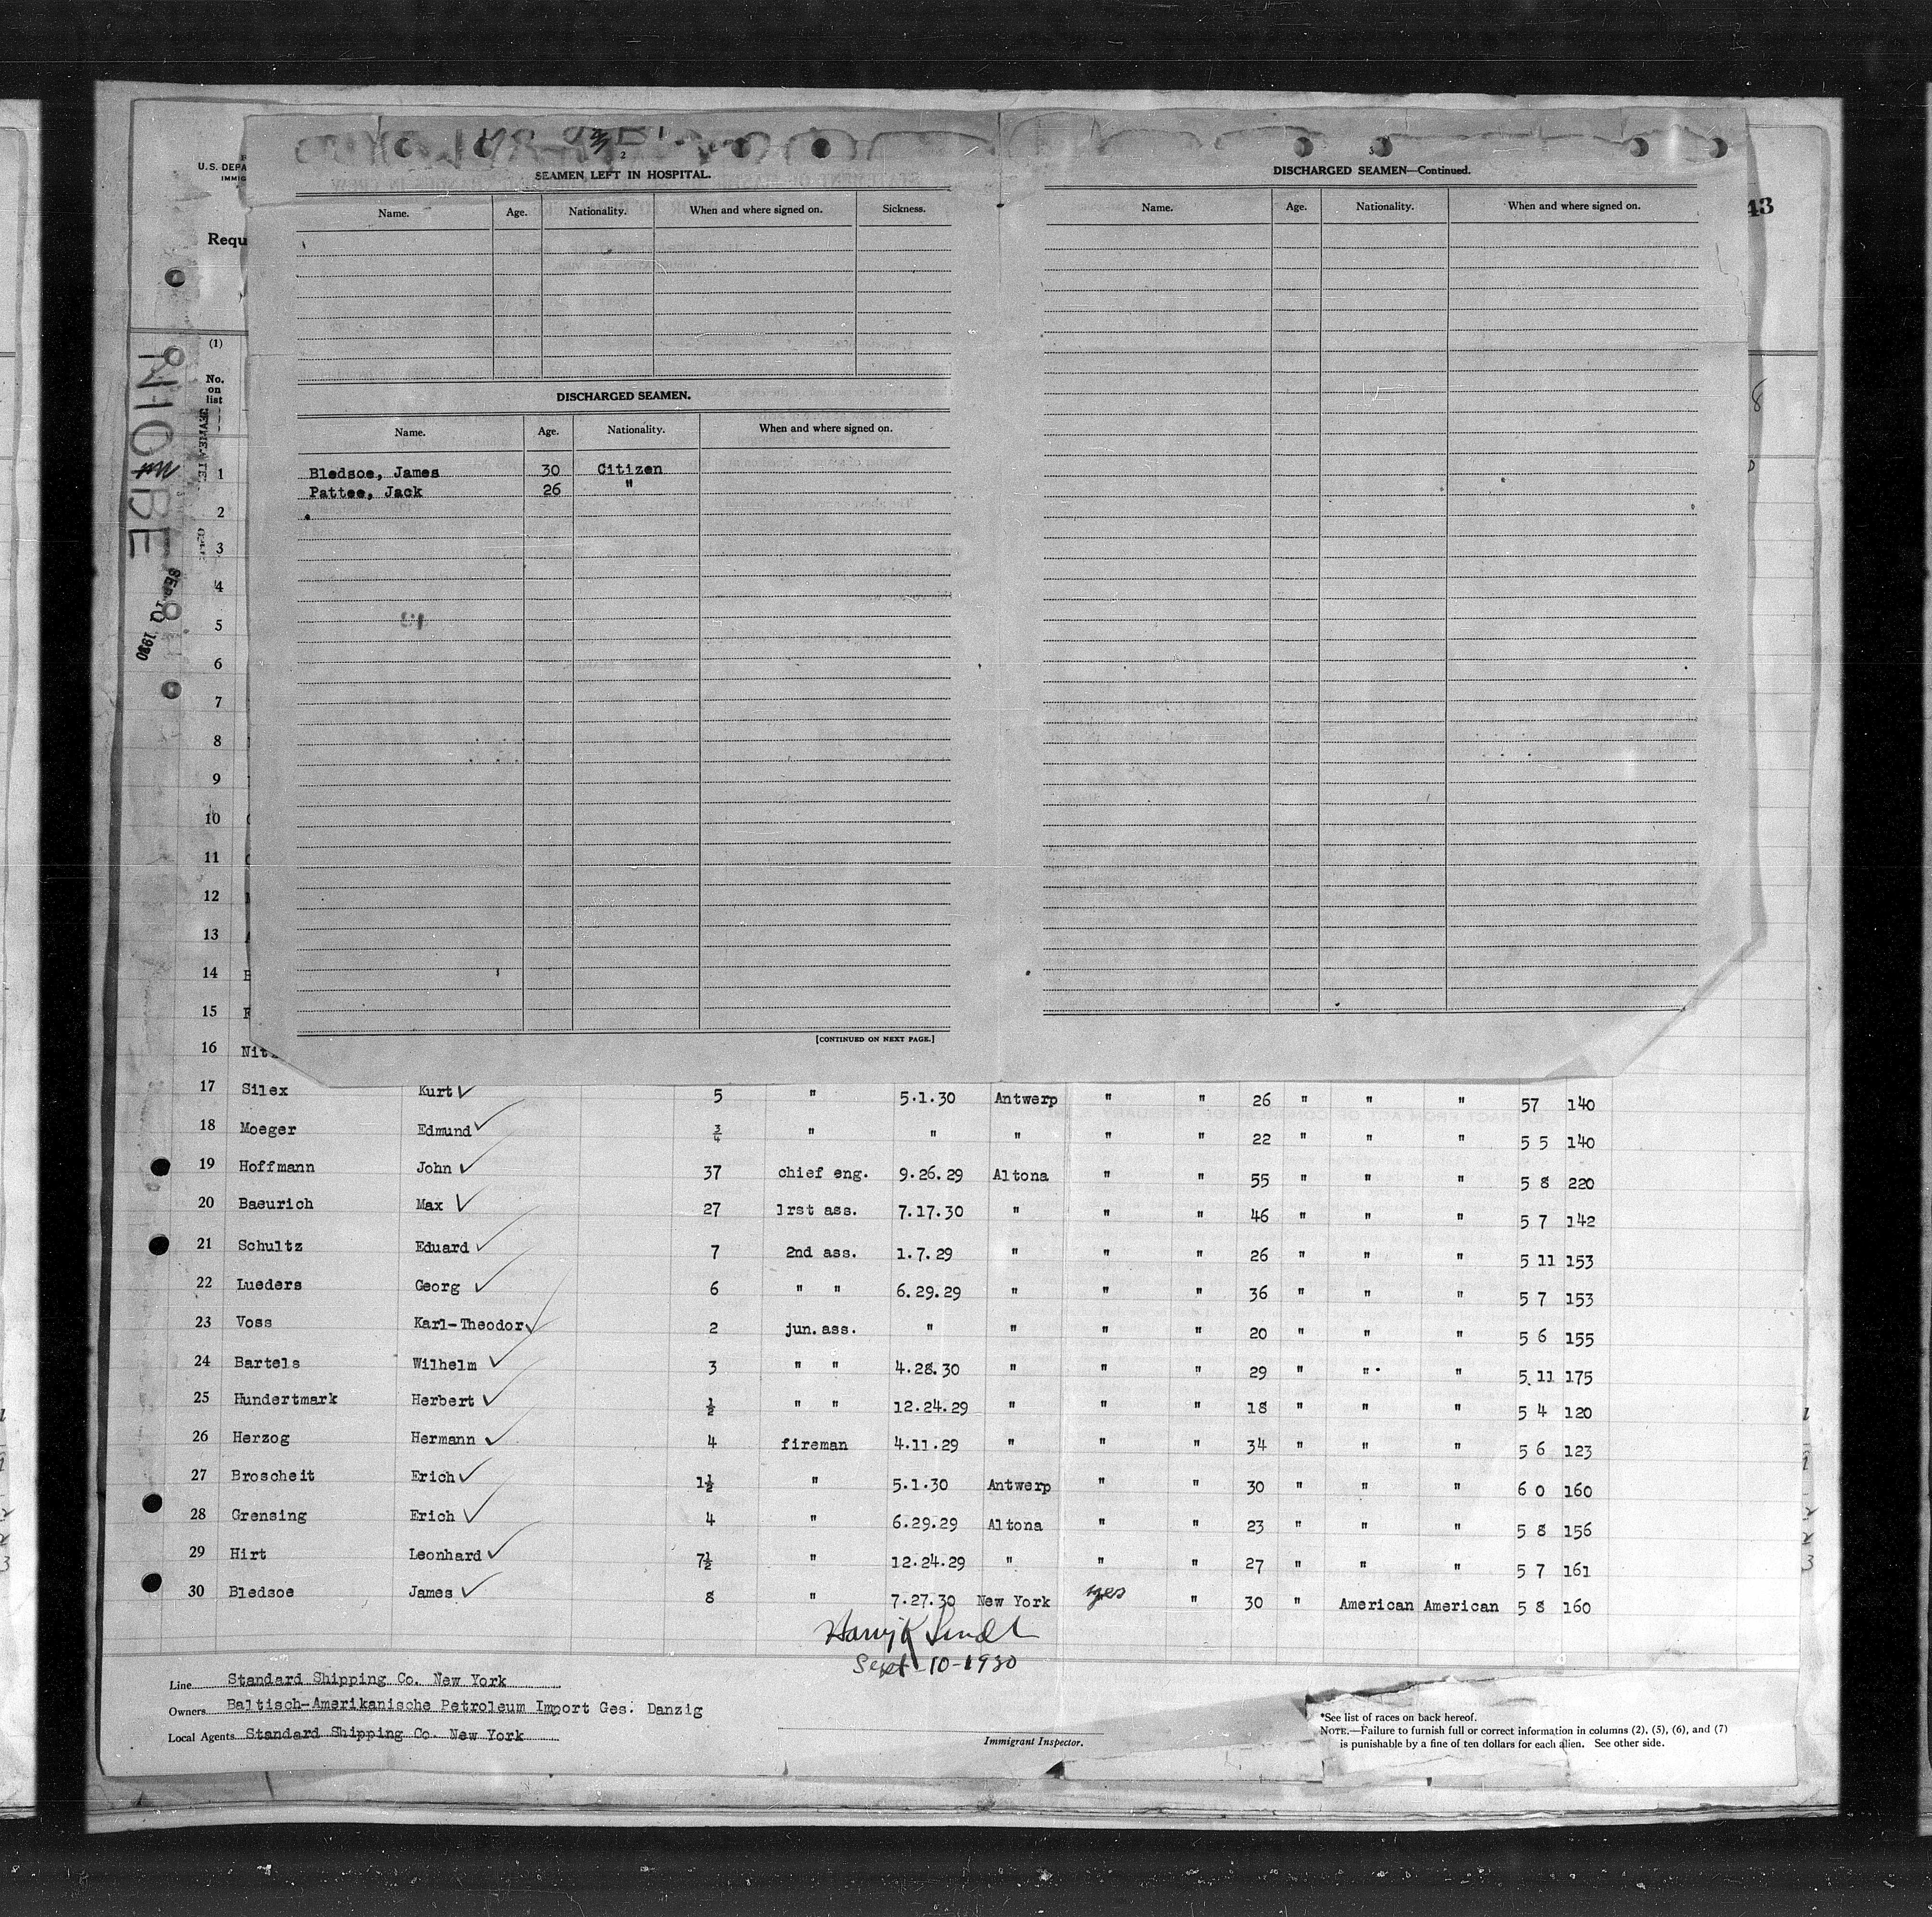 U.S. DEPA
IMMIG
Requ
43
(1)
No.
on
list
NIOBE
SEP 10 1930
2
SEAMEN LEFT IN HOSPITAL.
Name. Age. Nationality. When and where signed on. Sickness.
DISCHARGED SEAMEN.
Name. Age. Nationality. When and where signed on.
Bledsoe, James 30 Citizen
Pattee, Jack 26 "
[CONTINUED ON NEXT PAGE.]
3
DISCHARGED SEAMEN—Continued.
Name. Age. Nationality. When and where signed on.
1
2
3
4
5
6
7
8
9
10
11
12
13
14
15
16 Nit
17 Silex Kurt 5 " 5.1.30 Antwerp " " 26 " " " 57 140
18 Moeger Edmund 3/4 " " " " " 22 " " " 5 5 140
19 Hoffmann John 37 chief eng. 9.26.29 Altona " " 55 " " 5 8 220
20 Baeurich Max 27 1rst ass. 7.17.30 " " " 46 " " " 5 7 142
21 Schultz Eduard 7 2nd ass. 1.7.29 " " " 26 " " " 5 11 153
22 Lueders Georg 6 " " 6.29.29 " " " 36 " " " 5 7 153
23 Voss Karl-Theodor 2 jun.ass. " " " " 20 " " " 5 6 155
24 Bartels Wilhelm 3 " " 4.28.30 " " " 29 " " " 5.11 175
25 Hundertmark Herbert 1/2 " " 12.24.29 " " " 18 " " " 5 4 120
26 Herzog Hermann 4 fireman 4.11.29 " " " 34 " " " 5 6 123
27 Broscheit Erich 1½ " 5.1.30 Antwerp " " 30 " " " 6 0 160
28 Grensing Erich 4 " 6.29.29 Altona " " 23 " " " 5 8 156
29 Hirt Leonhard 7½ " 12.24.29 " " " 27 " " " 5 7 161
30 Bledsoe James 8 " 7.27.30 New York yes " 30 " American American 5 8 160
Sept-10-1930
Line Standard Shipping Co. New York
Owners Baltisch-Amerikanische Petroleum Import Ges. Danzig
Local Agents Standard Shipping Co. New York
Immigrant Inspector.
*See list of races on back hereof.
NOTE.—Failure to furnish full or correct information in columns (2), (5), (6), and (7)
is punishable by a fine of ten dollars for each alien. See other side.